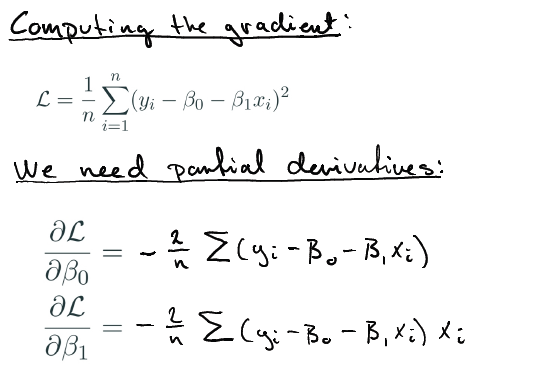 Computing the gradient:
ℒ = 1/n ∑_{i=1}^{n} (y_i − β_0 − β_1 x_i)^2
We need partial derivatives:
∂ℒ/∂β_0 = − 2/n ∑ (y_i − β_0 − β_1 x_i)
∂ℒ/∂β_1 = − 2/n ∑ (y_i − β_0 − β_1 x_i) x_i